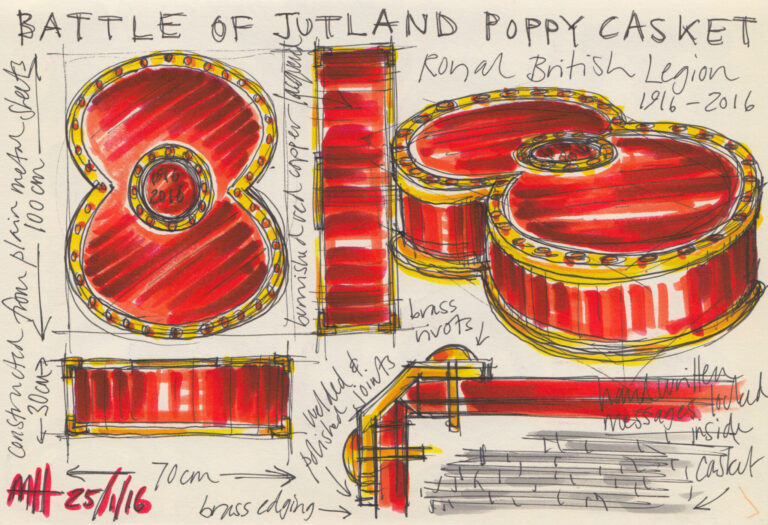 BATTLE OF JUTLAND POPPY CASKET
Royal British Legion
1916-2016
constructed from plain metal sheets
100cm
burnished red copper
1916
2016
30cm
70cm
brass
rivets
welded &
polished joints
brass edging
hand written
messages
inside
casket
MH 25/1/16